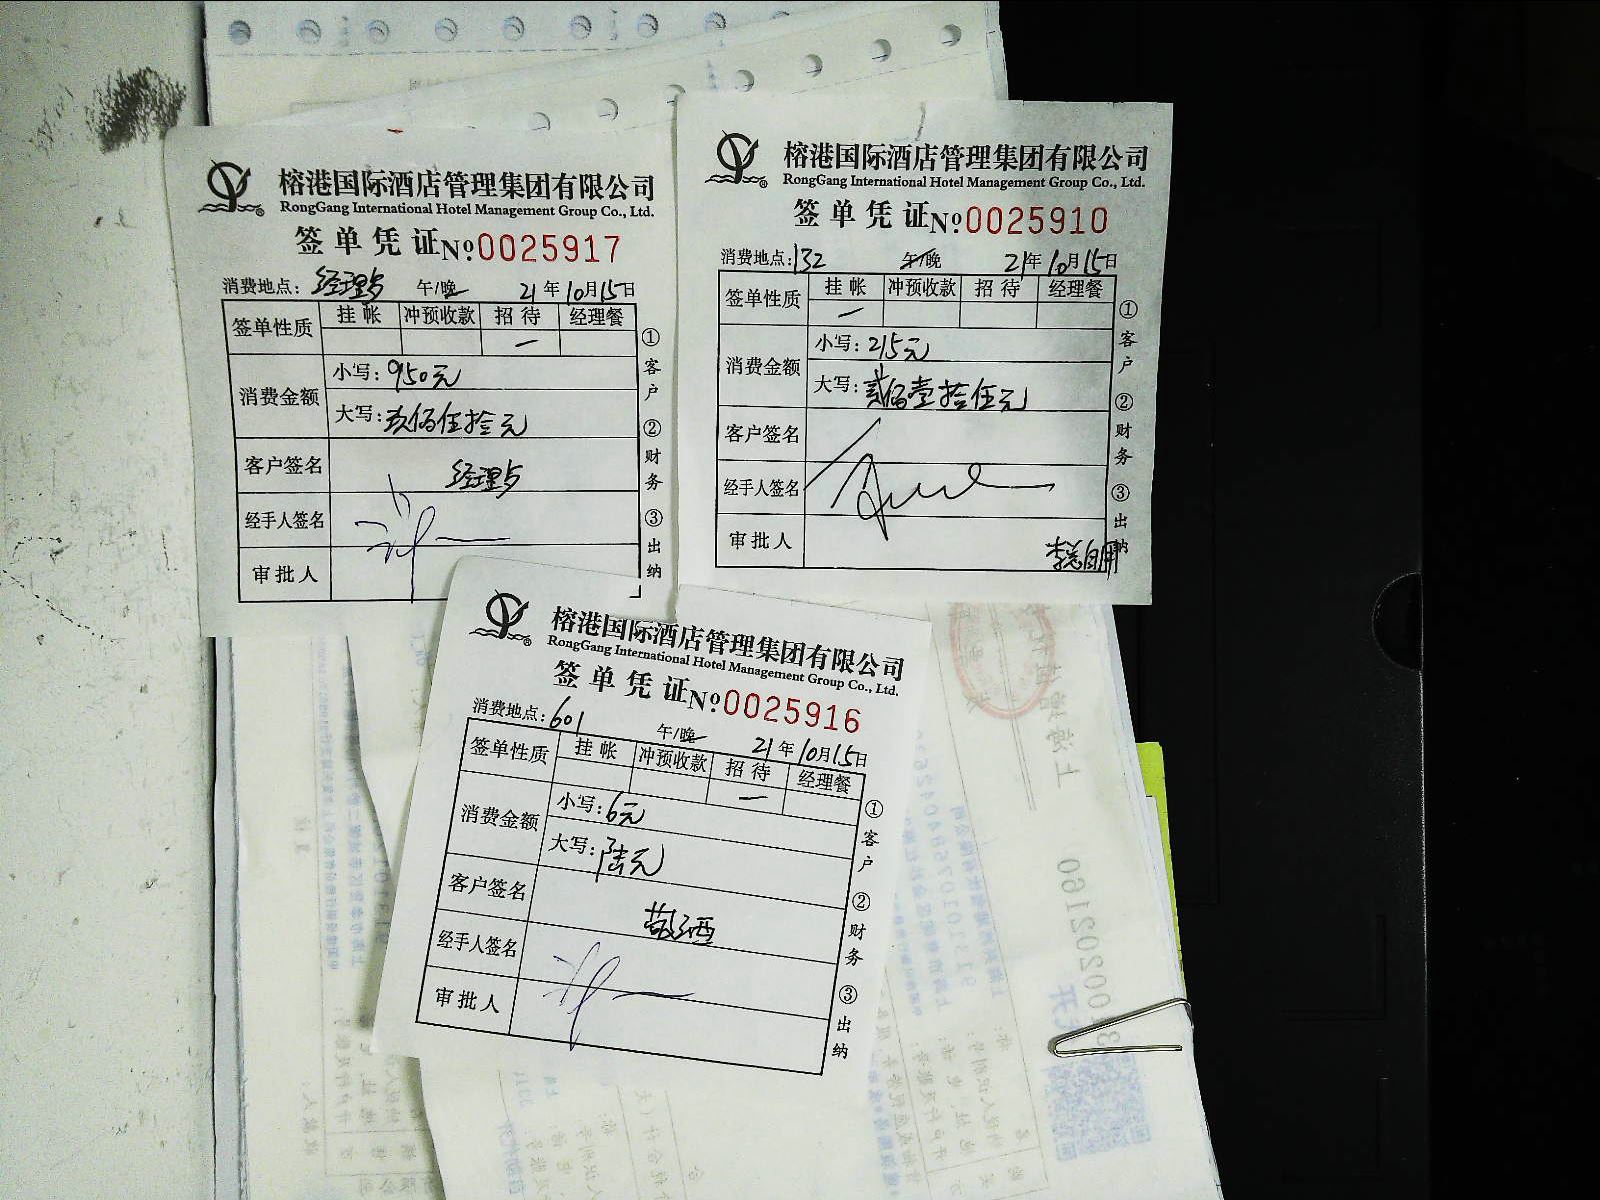 榕港国际酒店管理集团有限公司
RongGang International Hotel Management Group Co., Ltd.
签单凭证№0025917
消费地点: 经理 午/晚 21年10月15日
签单性质 挂帐 冲预收款 招待 经理餐
消费金额 小写: 950元
大写: 玖佰伍拾元
客户签名 经理
经手人签名
审批人
①客户 ②财务 ③出纳
榕港国际酒店管理集团有限公司
RongGang International Hotel Management Group Co., Ltd.
签单凭证№0025910
消费地点: 132 午/晚 21年10月15日
签单性质 挂帐 冲预收款 招待 经理餐
消费金额 小写: 215元
大写: 贰佰壹拾伍元
客户签名
经手人签名
审批人 李总自用
①客户 ②财务 ③出纳
榕港国际酒店管理集团有限公司
RongGang International Hotel Management Group Co., Ltd.
签单凭证№0025916
消费地点: 601 午/晚 21年10月15日
签单性质 挂帐 冲预收款 招待 经理餐
消费金额 小写: 6元
大写: 陆元
客户签名 敬酒
经手人签名
审批人
①客户 ②财务 ③出纳